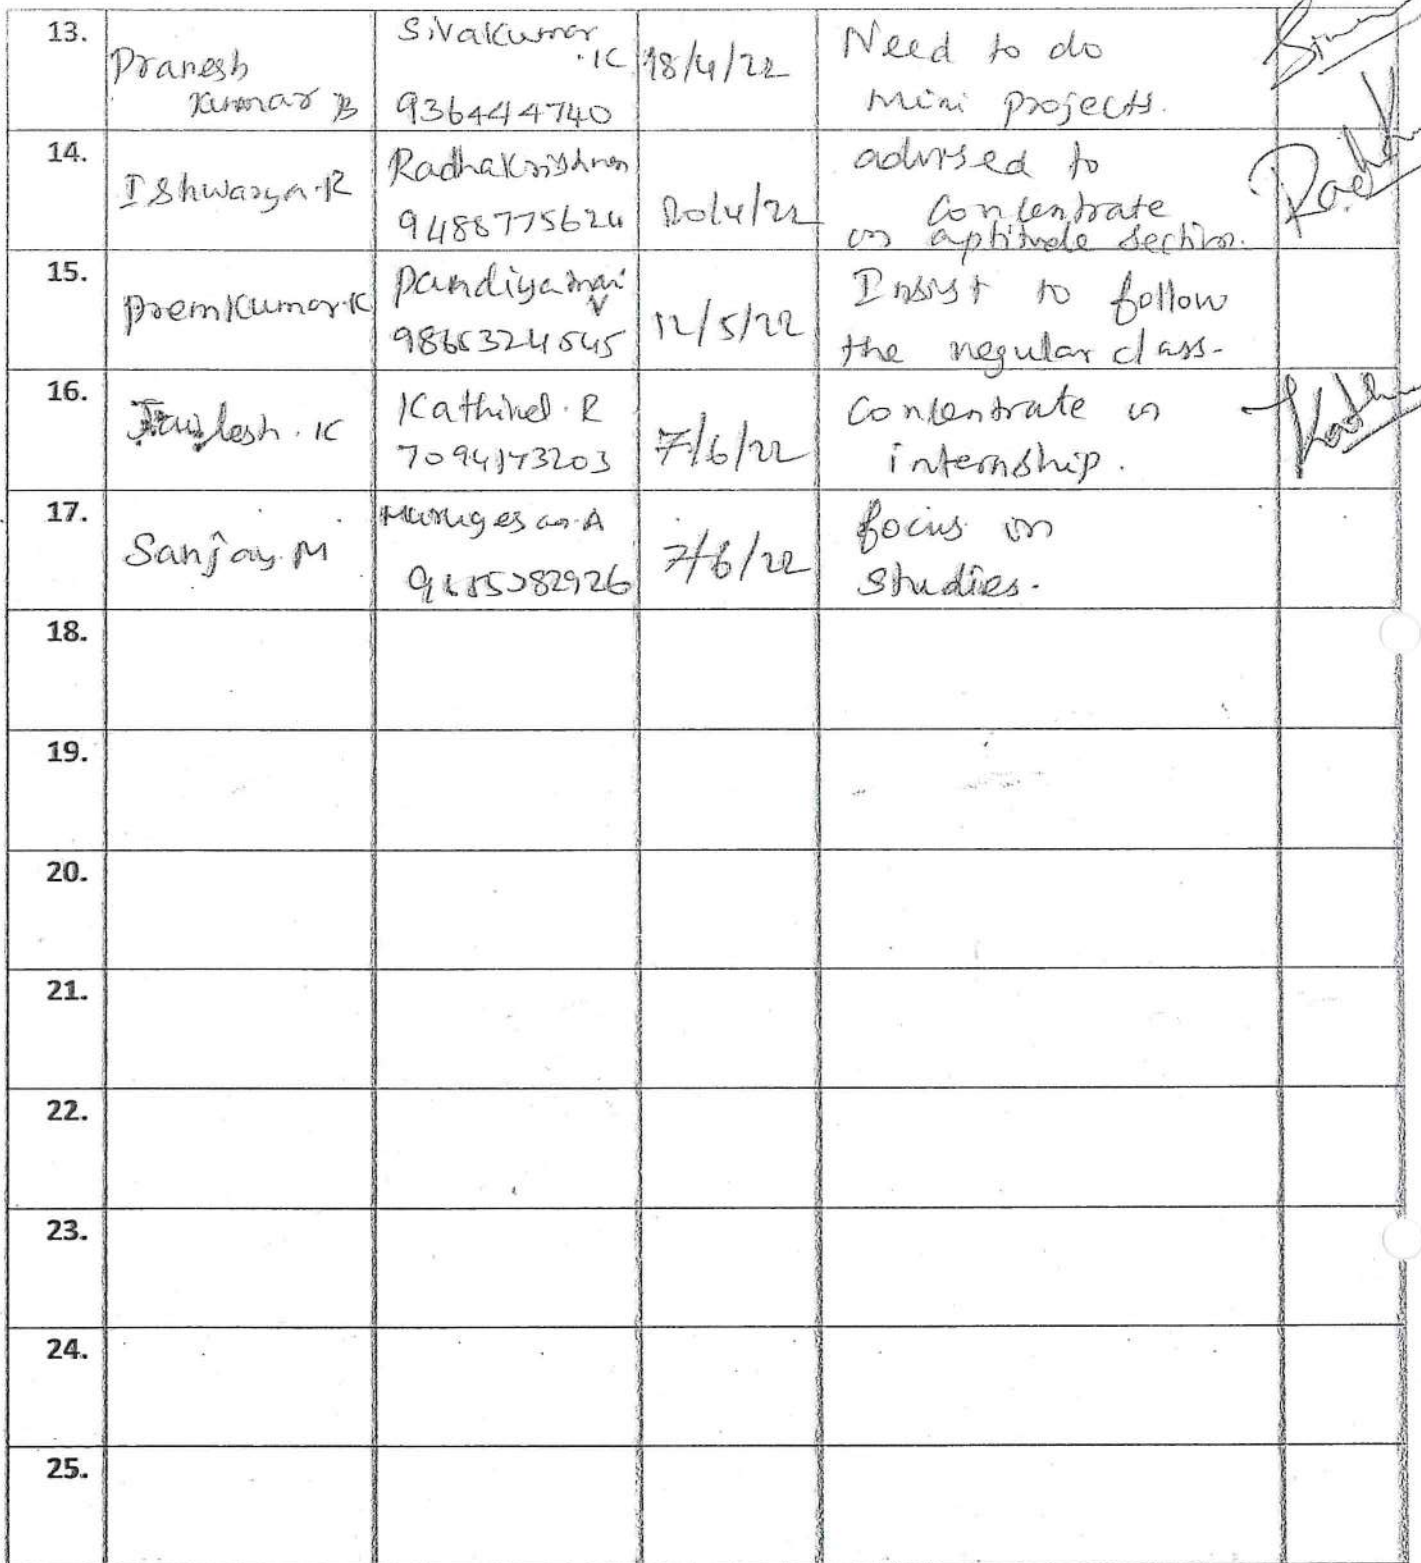 13.
Pranesh
Kumar B
Sivakumar
.K
936444740
18/4/22
Need to do
Mini projects.
14.
Ishwarya.R
Radhakrishnan
9488775624
20/4/22
advised to
concentrate
on aptitude section.
15.
Premkumar.K
Pandiyamani
V
12/5/22
Insist to follow
the regular class.
16.
.K
Kathivel.R
7094173203
7/6/22
concentrate in
internship.
17.
Sanjay.M
Murugesan.A
7/6/22
focus on
studies.
18.
19.
20.
21.
22.
23.
24.
25.